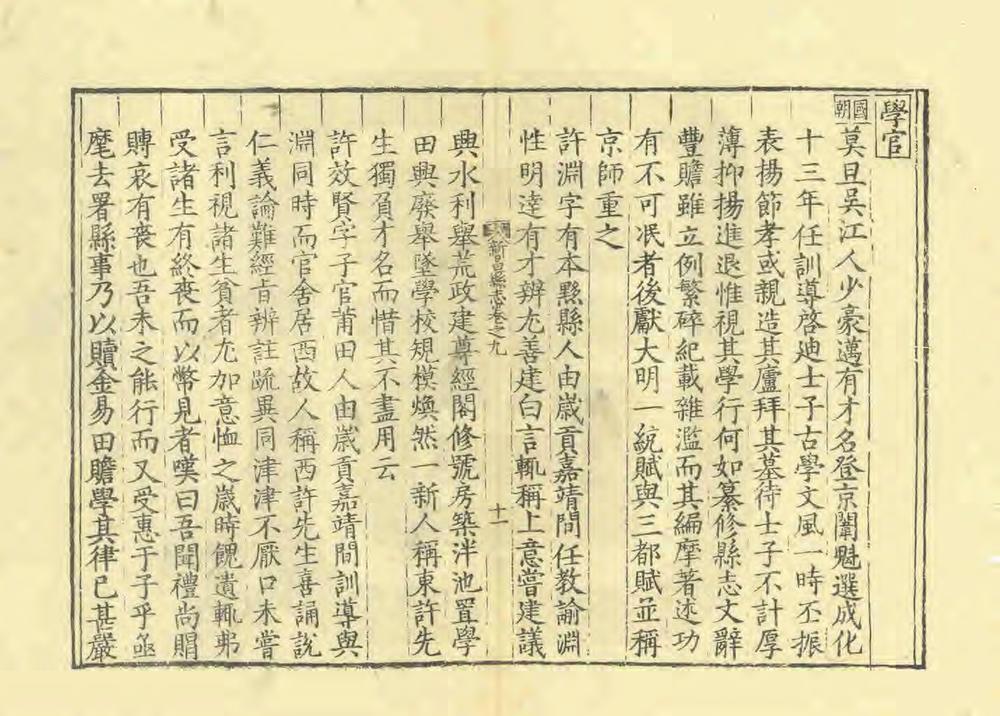 學官
國朝莫旦吳江人少豪邁有才名登京闈魁選成化
十三年任訓導啓迪士子古學文風一時丕振
表揚節孝或親造其廬拜其墓待士子不計厚
薄抑揚進退惟視其學行何如纂修縣志文辭
豐贍雖立例繁碎紀載雜濫而其編摩著述功
有不可泯者後獻大明一統賦與三都賦並稱
京師重之
許淵字有本黟縣人由歲貢嘉靖間任教諭淵
性明達有才辨尤善建白言輒稱上意嘗建議
新昌縣志卷之九
十一
興水利舉荒政建尊經閣修號房築泮池置學
田興廢舉墜學校規模煥然一新人稱東許先
生獨負才名而惜其不盡用云
許效賢字子官莆田人由歲貢嘉靖間訓導與
淵同時而官舍居西故人稱西許先生喜誦說
仁義論難經旨辨註䟽異同津津不厭口未嘗
言利視諸生貧者尤加意恤之歲時餽遺輒弗
受諸生有終喪而以幣見者嘆曰吾聞禮尚賵
賻哀有喪也吾未之能行而又受惠于子乎亟
麾去署縣事乃以贖金易田贍學其律已甚嚴